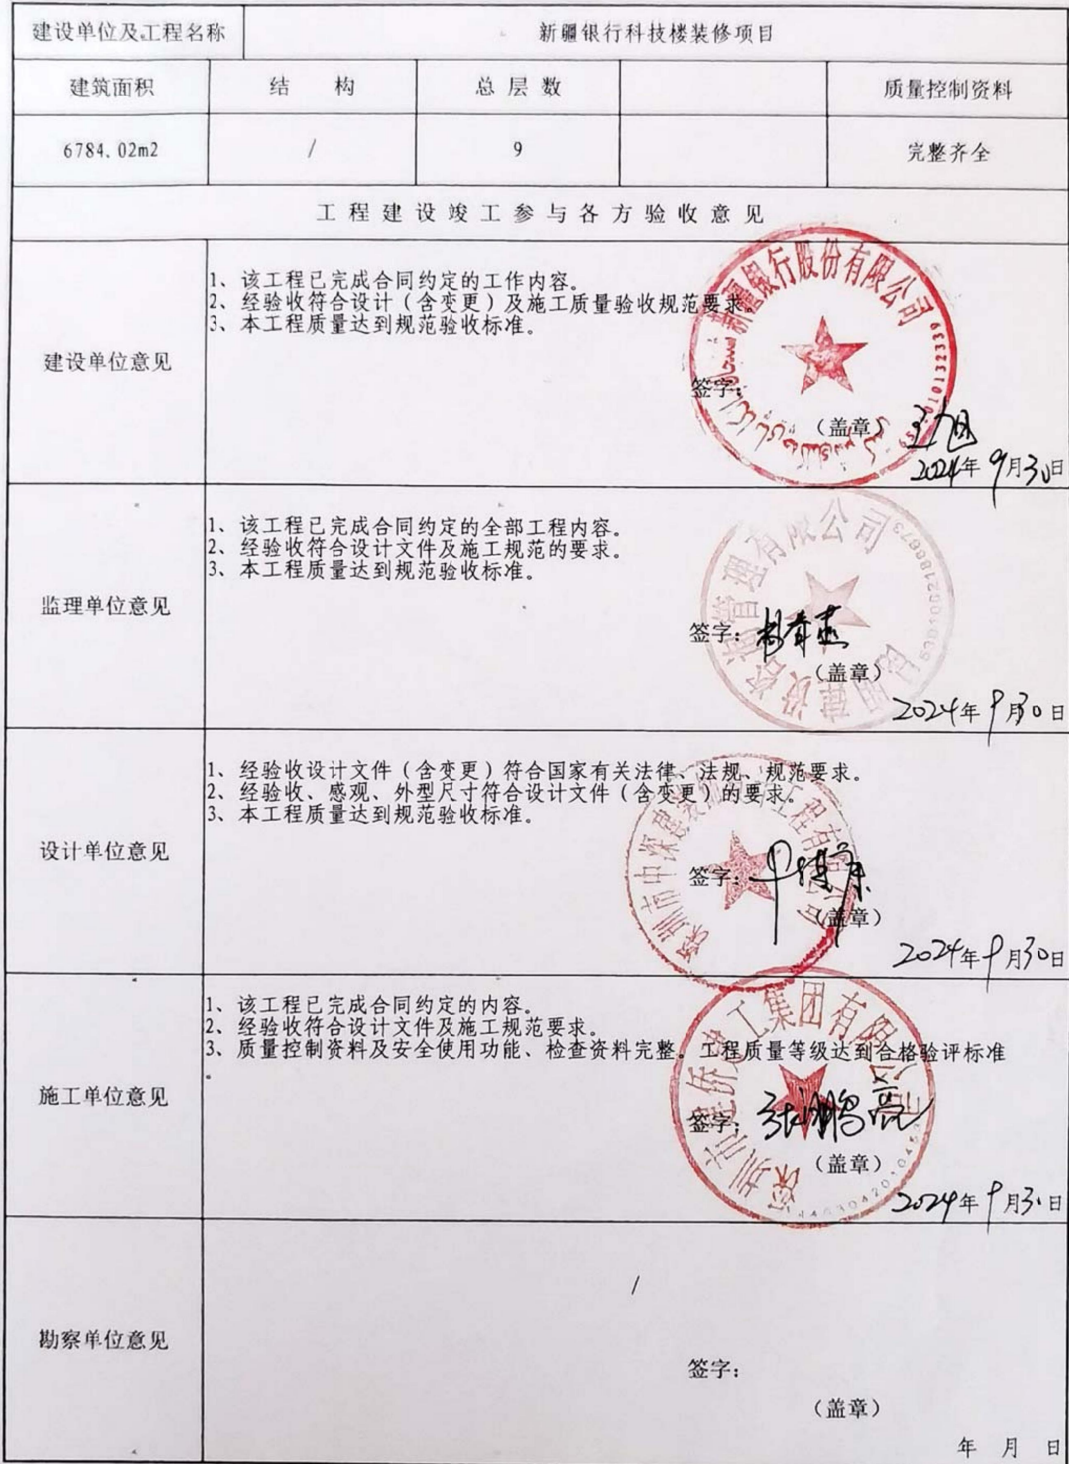 建设单位及工程名称 新疆银行科技楼装修项目
建筑面积 结 构 总 层 数 质量控制资料
6784.02m2 / 9 完整齐全
工程建设竣工参与各方验收意见
建设单位意见
1、该工程已完成合同约定的工作内容。
2、经验收符合设计(含变更)及施工质量验收规范要求。
3、本工程质量达到规范验收标准。
新疆银行股份有限公司
签字:
(盖章)
2024年9月30日
监理单位意见
1、该工程已完成合同约定的全部工程内容。
2、经验收符合设计文件及施工规范的要求。
3、本工程质量达到规范验收标准。
建设咨询管理有限公司
签字:
(盖章)
2024年9月30日
设计单位意见
1、经验收设计文件(含变更)符合国家有关法律、法规、规范要求。
2、经验收、感观、外型尺寸符合设计文件(含变更)的要求。
3、本工程质量达到规范验收标准。
深圳市中深建装饰设计工程有限公司
签字:
(盖章)
2024年9月30日
施工单位意见
1、该工程已完成合同约定的内容。
2、经验收符合设计文件及施工规范要求。
3、质量控制资料及安全使用功能、检查资料完整。工程质量等级达到合格验评标准
。
深圳市建侨建工集团有限公司
签字: 张鹏亮
(盖章)
2024年9月30日
勘察单位意见
/
签字:
(盖章)
年 月 日